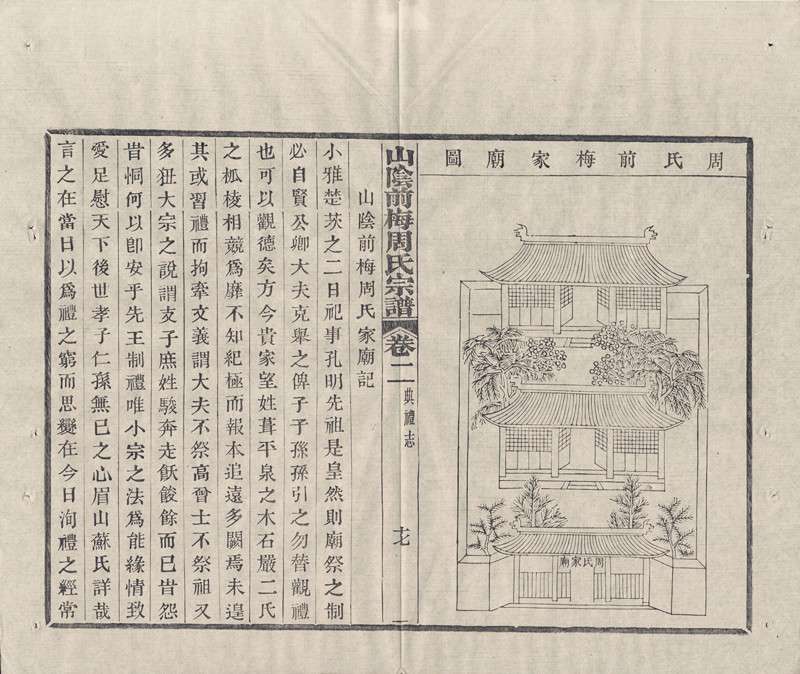 周氏前梅家廟圖
周氏家廟
山陰前梅周氏宗譜
卷二
典禮志
十七
山陰前梅周氏家廟記
小雅楚茨之二曰祀事孔明先祖是皇然則廟祭之制
必自賢公卿大夫克舉之俾子子孫孫引之勿替觀禮
也可以觀德矣方今貴家望姓葺平泉之木石嚴二氏
之柧棱相競爲靡不知紀極而報本追遠多闕焉未遑
其或習禮而拘牽文義謂大夫不祭高曾士不祭祖又
多狃大宗之說謂支子庶姓駿奔走飫餕餘而已旹怨
旹恫何以卽安乎先王制禮唯小宗之法爲能緣情致
愛足慰天下後世孝子仁孫無已之心眉山蘇氏詳哉
言之在當日以爲禮之窮而思變在今日洵禮之經常